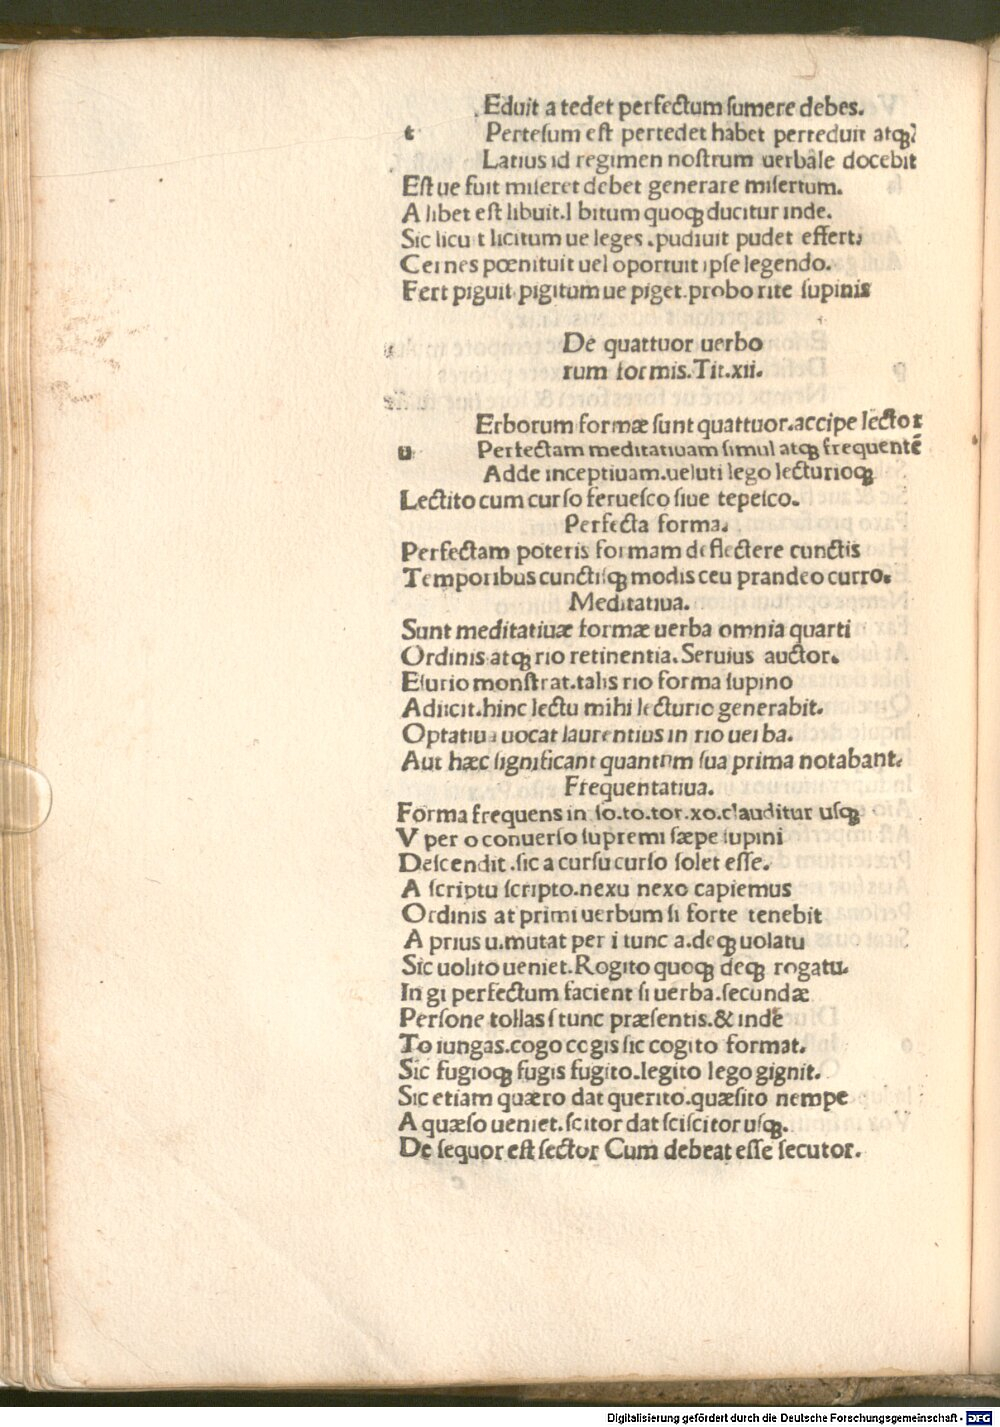 Eduit a tedet perfectum sumere debes.
t Pertesum est pertedet habet perteduit atqꝫ
Latius id regimen nostrum uerbale docebit
Est ue fuit miseret debet generare misertum.
A libet est libuit. l bitum quoqꝫ ducitur inde.
Sic licu t licitum ue leges. pudiuit pudet effert.
Cernes pœnituit uel oportuit ipse legendo.
Fert piguit pigitum ue piget. probo rite supinis
De quattuor uerbo
rum formis. Tit. xii.
Erborum formæ sunt quattuor. accipe lector
u Perfectam meditatiuam simul atqꝫ frequentē
Adde inceptiuam. ueluti lego lecturioqꝫ
Lectito cum curso feruesco siue tepesco.
Perfecta forma.
Perfectam poteris formam deflectere cunctis
Temporibus cunctisqꝫ modis ceu prandeo curro.
Meditatiua.
Sunt meditatiuæ formæ uerba omnia quarti
Ordinis atqꝫ rio retinentia. Seruius auctor.
Esurio monstrat. talis rio forma supino
Adiicit. hinc lectu mihi lecturio generabit.
Optatiua uocat laurentius in rio uerba.
Aut hæc significant quantum sua prima notabant.
Frequentatiua.
Forma frequens in so. to. tor. xo. clauditur usqꝫ
V per o conuerso supremi sæpe supini
Descendit. sic a cursu curso solet esse.
A scriptu scripto. nexu nexo capiemus
Ordinis at primi uerbum si forte tenebit
A prius u. mutat per i tunc a. deqꝫ uolatu
Sic uolito ueniet. Rogito quoqꝫ deqꝫ rogatu.
In gi perfectum facient si uerba. secundæ
Persone tollas s tunc præsentis. & inde
To iungas. cogo cogis sic cogito format.
Sic fugioqꝫ fugis fugito. legito lego gignit.
Sic etiam quæro dat querito. quæsito nempe
A quæso ueniet. scitor dat sciscitor usqꝫ.
De sequor est sector Cum debeat esse secutor.
Digitalisierung gefördert durch die Deutsche Forschungsgemeinschaft - DFG